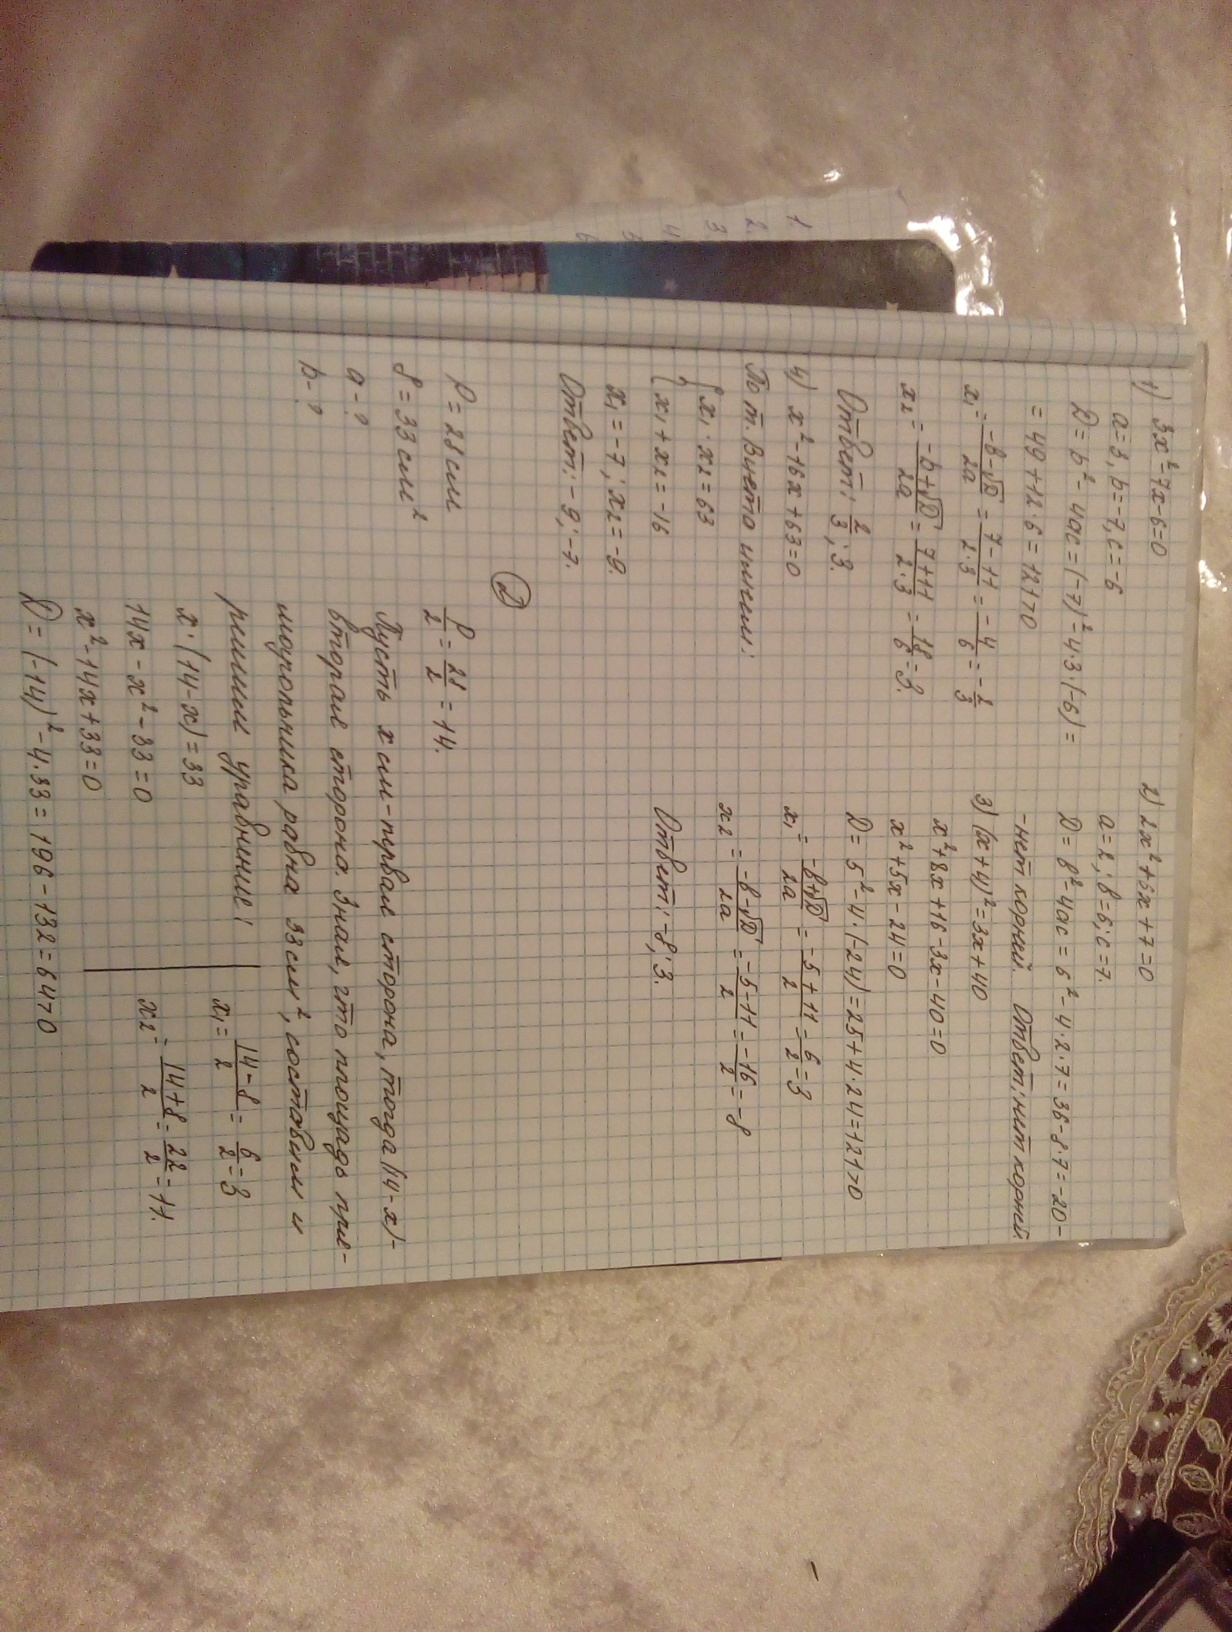 1) 3x²-7x-6=0
a=3, b=-7, c=-6
D=b²-4ac=(-7)²-4·3·(-6)=
=49+12·6=121>0
x₁=-b-√D/2a=7-11/2·3=-4/6=-2/3
x₂=-b+√D/2a=7+11/2·3=18/6=3.
Ответ: 2/3; 3.
4) x²-16x+63=0
По т. Виета имеем:
{x₁·x₂=63
{x₁+x₂=-16
x₁=-7; x₂=-9.
Ответ: -9; -7.
2) 2x²+6x+7=0
a=2; b=6; c=7.
D=b²-4ac=6²-4·2·7=36-8·7=-20-
-нет корней. Ответ: нет корней.
3) (x+4)²=3x+40
x²+8x+16-3x-40=0
x²+5x-24=0
D=5²-4·(-24)=25+4·24=121>0
x₁=-b+√D/2a=-5+11/2=6/2=3
x₂=-b-√D/2a=-5-11/2=-16/2=-8
Ответ: -8; 3.
②
P=28см
S=33см²
a-?
b-?
P/2=28/2=14.
Пусть x см-первая сторона, тогда (14-x)-
вторая сторона. Зная, что площадь пря-
моугольника равна 33см², составим и
решим уравнение:
x·(14-x)=33
14x-x²-33=0
x²-14x+33=0
D=(-14)²-4·33=196-132=64>0
x₁=14-8/2=6/2=3
x₂=14+8/2=22/2=11.
1.
2.
3
4
5
6